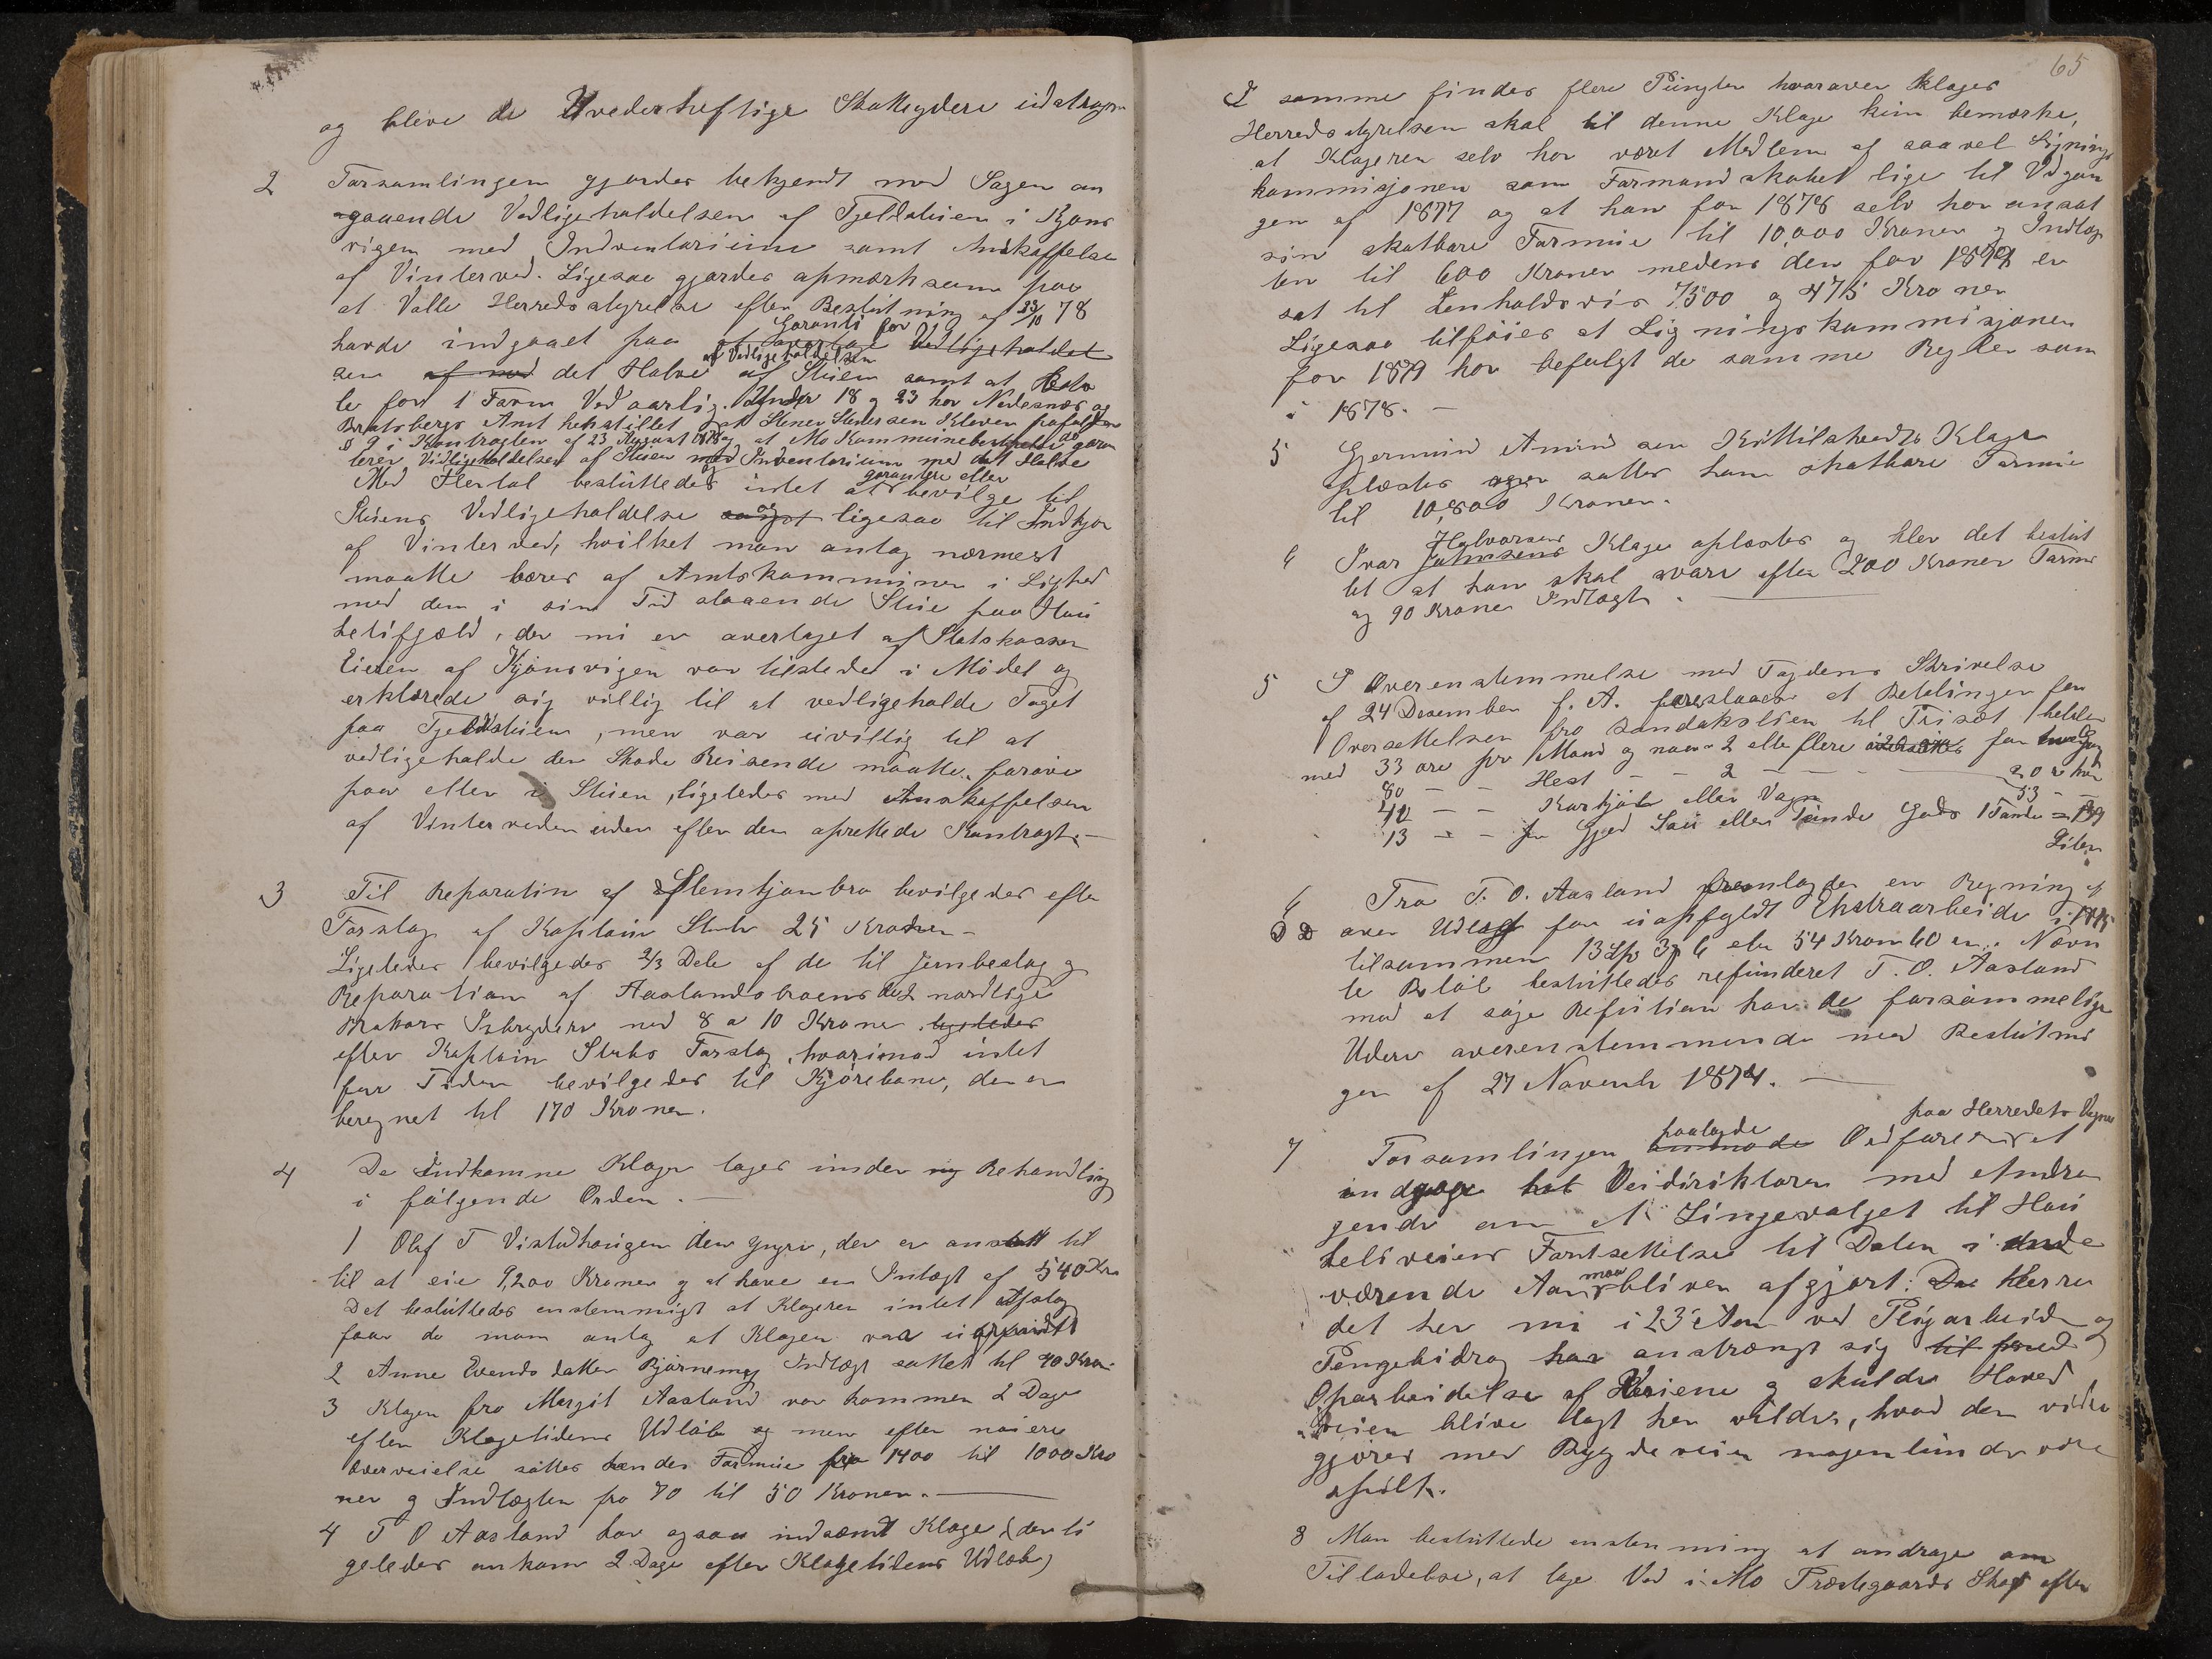 og bleve de Uvederheftige Skatteydere udstrøgn
2 Forsamlingen gjordes bekjendt med Sagen an
gaaende Vedligeholdelsen af Fjeldstuen i Kjøns
vigen med Indventarium samt Anskaffelse
af Vinterved. Ligesaa gjordes opmærksom paa
at Valle Herredsstyrelse efter Beslutning af 23/10 78
Garanti for
havde indgaaet paa at overtage Vedligeholdel
af Vedligeholdelsen
sen af med det Halve af Stuen samt at
le for 1 Favn Ved aarlig. Under 18 og 23 har Nedenæs og
Bratsbergs Amt henstillet at Stener Stenersen Kleven
§ 9 i Kontragten af 23 August 1878 og at Mo Kommunebestyrelse garan
terer Vedligeholdelsen af Stuen med Inventarium med det Halve
garantere eller
Med Flertal besluttedes intet at bevilge til
Stuens Vedligeholdelse ligesaa til Indkjøb
af Vinterved, hvilket man antog nærmest
maatte bæres af Amtskommunen i Lighed
med den i sin Tid staaende Stue paa Hau
kelifjeld, der nu er overtaget af Statskassen
Eieren af Kjønsvigen var tilstede i Mødet og
erklærede sig villig til at vedligeholde Taget
paa Fjeldstuen, men var uvillig til at
vedligeholde den Skade Reisende maatte forøve
paa eller i Stuen, ligeledes med Anskaffelsen
af Vinterveden uden efter den oprettede Kontragt. —
3 Til Reparation af Slemtjønbro bevilgedes efter
Forslag af Kaptain Stub 25 Kroner –
Ligeledes bevilgedes 2/3 Dele af de til Jernbeslag og
Reparation af Aaslandsbroens det nordlige
Brokars Isbrydere med 8 a 10 Kroner ligeledes
efter Kaptain Stubs Forslag, hvorimod intet
for Tiden bevilgedes til Kjørebane, der er
beregnet til 170 Kroner.
4 De Indkomne Klager tages under ny Behandling
i følgende Orden. —
1 Olaf T Vistadhaugen den yngre, der er ansatt til
til at eie 9,200 Kroner og at have en Intægt af 540 Kro
Det besluttedes enstemmigt at Klageren intet Afslag
faar da man antog at Klagen var ugrundet
2 Anne Evends datter Bjørnemyr Indtægt sattes til 40 Kro.
3 Klagen fra Margit Aasland var kommen 2 Dage
efter Klagetidens Udløb og men efter nøiere
Overveielse sattes hendes Formue fra 1400 til 1000 Kro
ner og Indtægten fra 70 til 50 Kroner. —
4 T O Aasland har ogsaa indsændt Klage (der li
geledes ankom 2 Dage efter Klagetidens Udløb)
65
I samme findes flere Pungter hvorover klages
Herredsstyrelsen skal til denne Klage kun bemærke,
at Klageren selv har været Medlem af saavel Ligning
kommisjonen som Formandskabet lige til Udgan
gen af 1877 og at han for 1878 selv har ansat
sin skatbare Formue til 10,000 Kroner og Indtæg
ten til 600 Kroner medens den for 1879 er
sat til henholdsvis 7,500 og 475 Kroner
Ligesaa tilføies at Ligningskommisjonen
for 1879 har befulgt de samme Regler som
i 1878. –
5 Gjermund Amundsen Kittilshedts Klage
oplæstes og sattes hans skatbare Formue
til 10,800 Kroner.
Halvorsens
6 Ivar Johnsens Klage oplæstes og blev det beslut
tet at han skal svare efter 200 Kroner Formu
og 90 Kroner Indtægt. —
5 I Overenstemmelse med Fogdens Skrivelse
af 24 Desember f. A. foreslaaes at Betalingen for
Oversættelsen fra Sandoksliden til Trisæt betales
med 33 øre pr Mand og naar 2 eller flere for
80 – – Hest – – 2 – – – – 20 øre hver
40 – – Karkjøl eller Vogn 53 – –
13 – – for Gjed Sau eller Tønde Gods 1 Tønde = 139
Liter
6 Fra T. O. Aasland fremlagdes en Regning af
over Udlæg for uopfyldt Ekstraarbeide i
tilsammen 13 Sp 3 6 eller 54 Kron 60 ør. Nævn
te Beløb besluttedes refunderet T. O. Aasland
mod at søge Refution hos de forsømmelige
Ydere overenstemmende med Beslutnin
gen af 27 Novemb 1874. —
paalagde paa Herredets Vegne
7 Forsamlingen anmode Ordføreren at
andrage hos Veidiriktøren med Andra
gende om at Lingevalget til Hau
keliveiens Fortsettelse til Dalen i inde
maa
værende Aar bliver afgjort. Da Herre
det her nu i 23 Aar ved Pligarbeide og
Pengebidrag har anstrængt sig til med
Oparbeidelse af Veiene og skulde Hoved
veien blive lagt her vilde, hvad den videre
gjøres med Bygdeveien nogenlunde være
spildt.
8 Man besluttede enstemmig at andrage om
Tilladelse, at tage Ved i Mo Præstegaards Skog efter